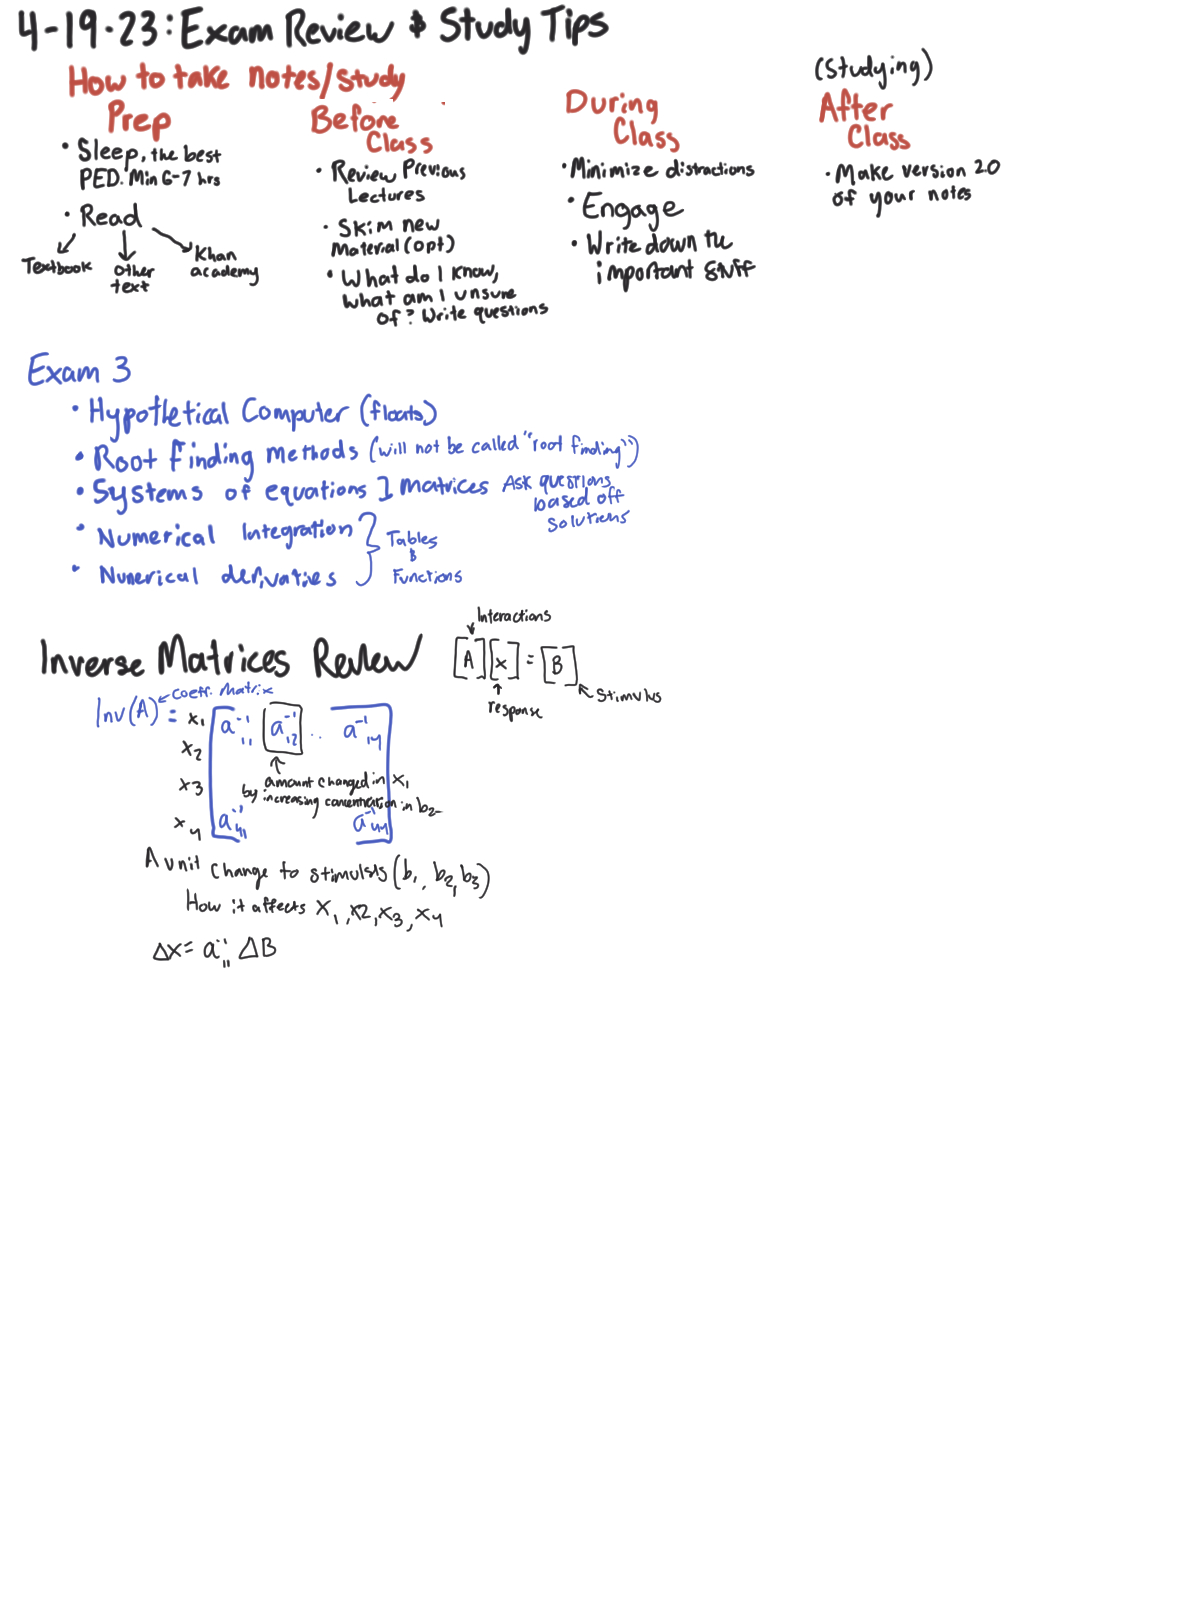 4-19-23: Exam Review & Study Tips
How to take notes/study
Prep
• Sleep, the best
PED. Min 6-7 hrs
• Read
Textbook
other
text
Khan
academy
Before
Class
• Review Previous
Lectures
• Skim new
Material (opt)
• What do I know,
what am I unsure
of? Write questions
During
Class
• Minimize distractions
• Engage
• Write down the
important stuff
(Studying)
After
Class
• Make version 2.0
of your notes
Exam 3
• Hypothetical Computer (floats)
• Root finding methods (will not be called "root finding")
• Systems of equations ] matrices Ask questions
based off
solutions
• Numerical Integration
• Numerical derivatives
Tables
&
Functions
Inverse Matrices Review
Interactions
[A][x] = [B]
response
Stimulus
Inv(A) =
Coeff. Matrix
x₁ a⁻¹₁₁ a⁻¹₁₂ .. a⁻¹₁₄
x₂
x₃
x₄ a⁻¹₄₁ a⁻¹₄₄
amount changed in x₁
by increasing concentration in b₂
A unit change to stimulus (b₁, b₂, b₃)
How it affects x₁, x2, x₃, x₄
Δx = a⁻¹₁₁ ΔB